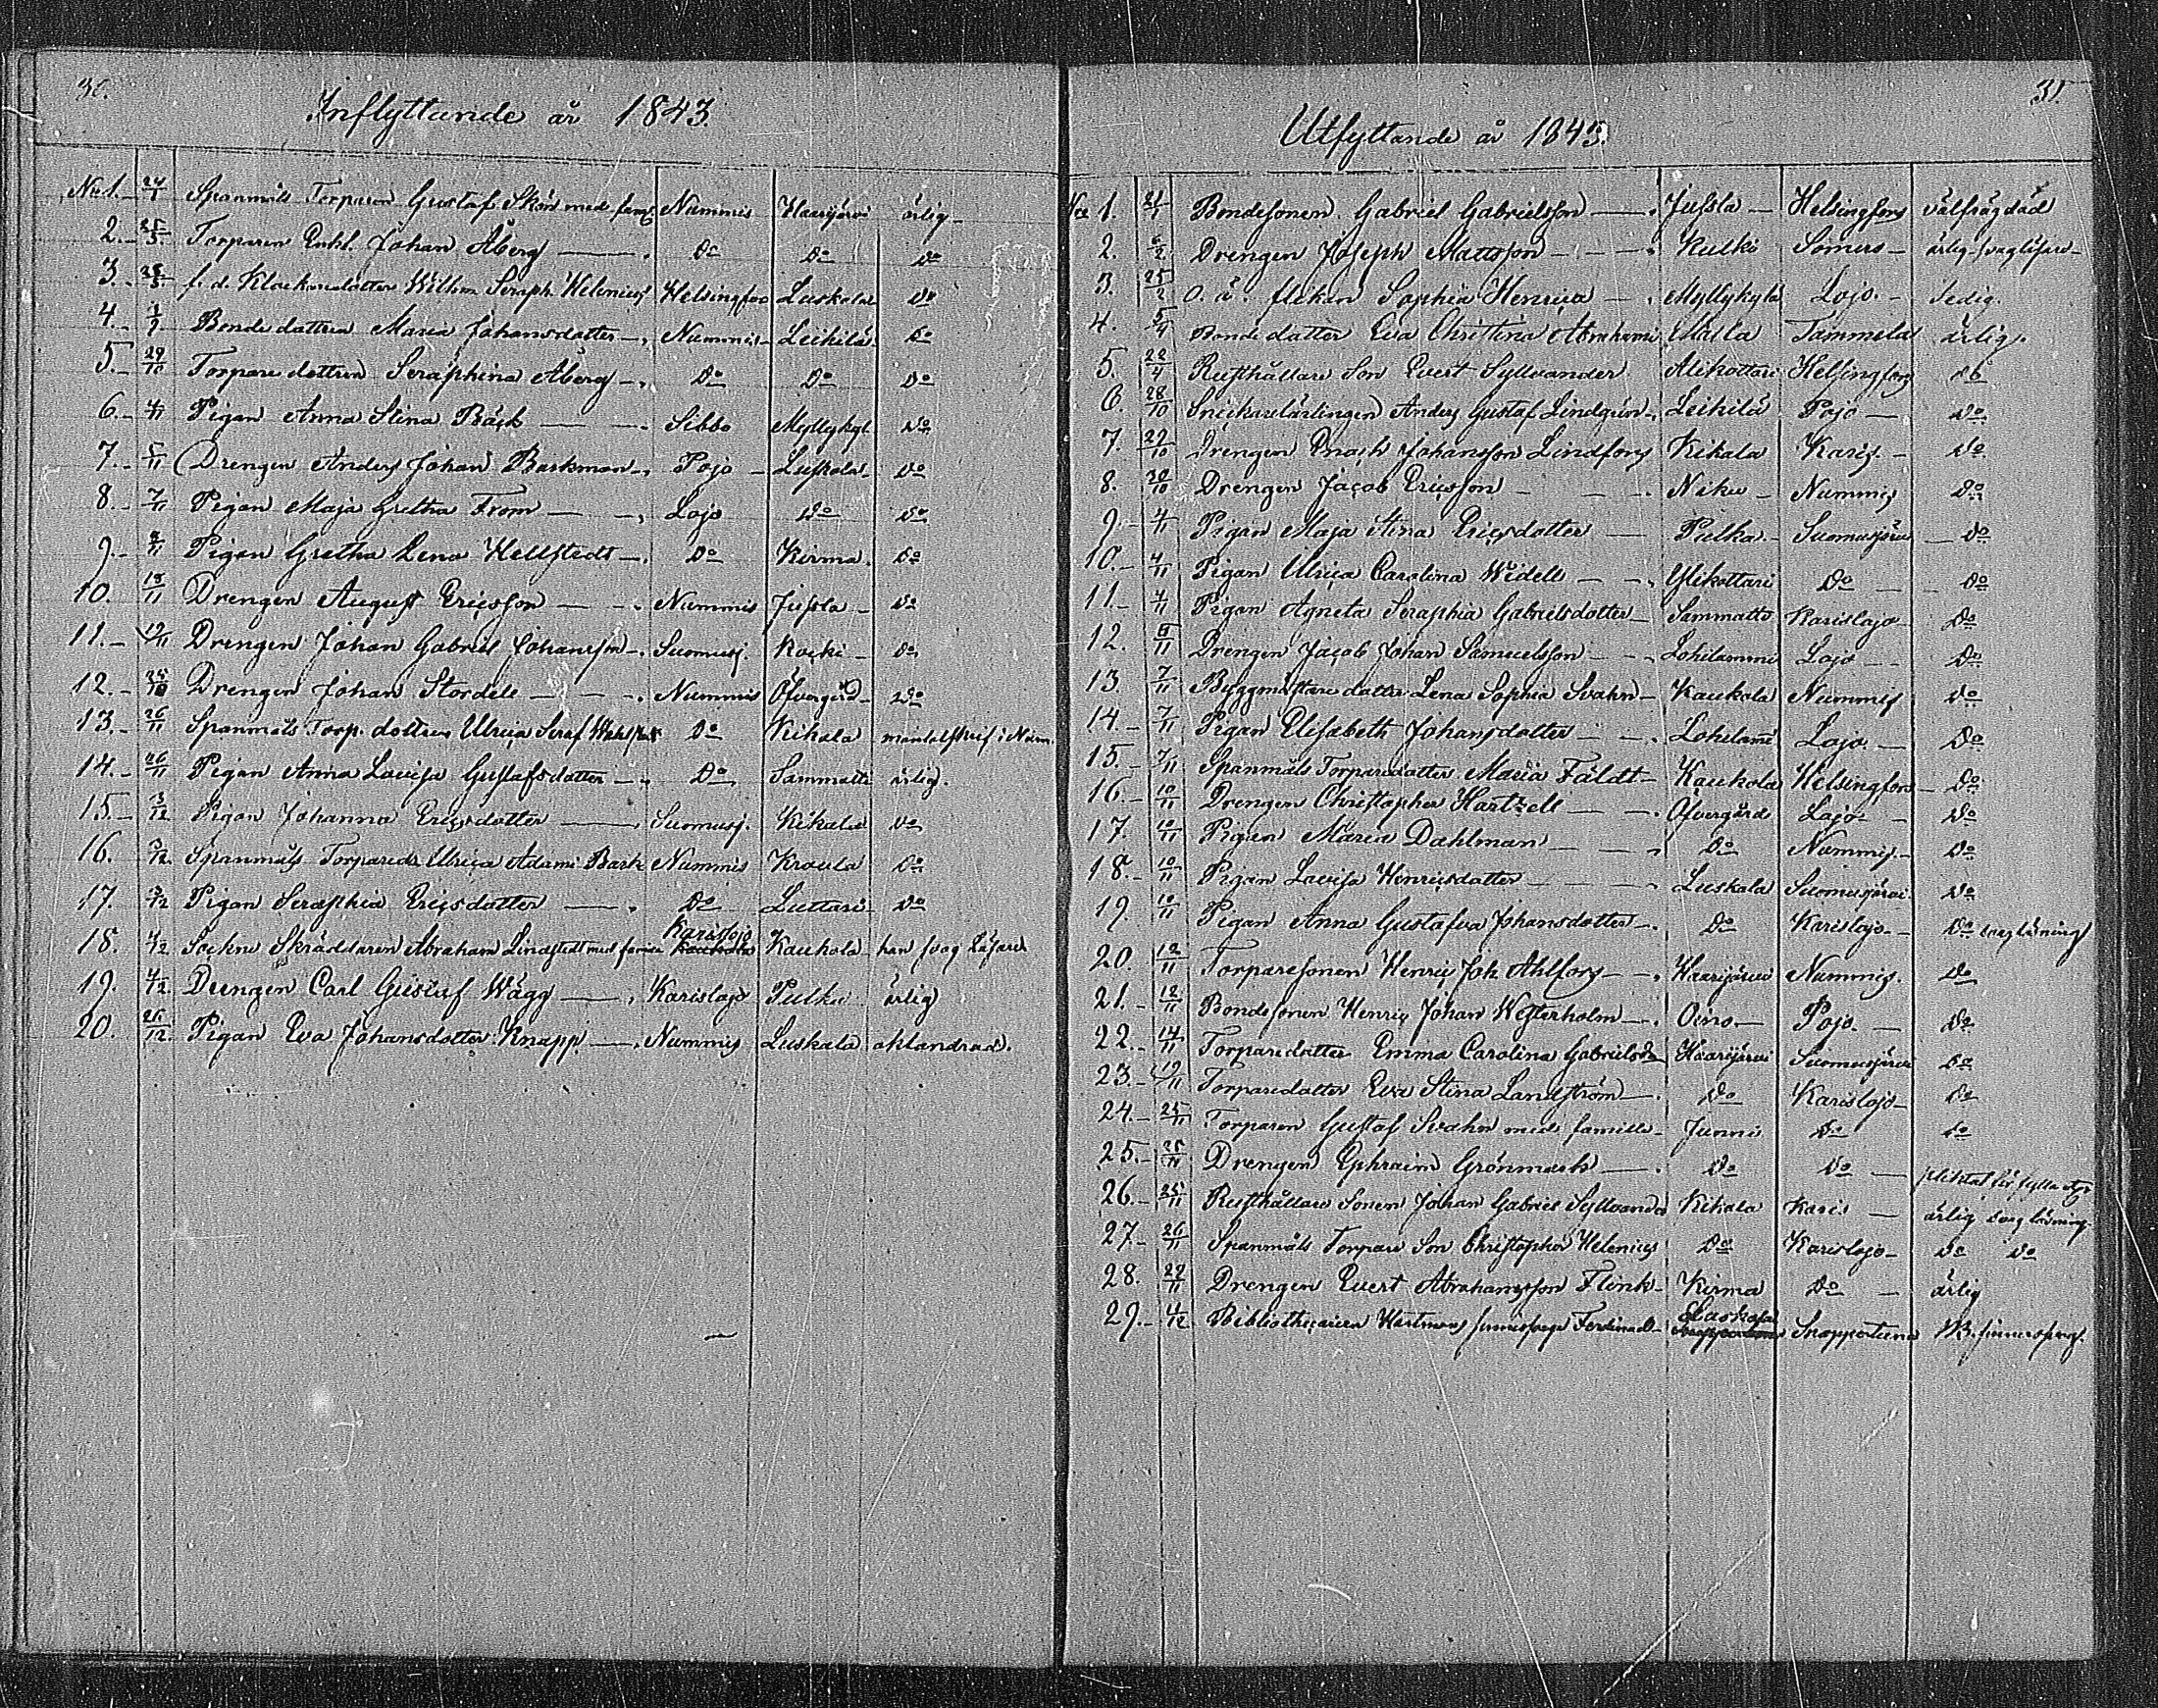 30.
Inflyttande år 1843.
No 1. 24/1 Spanmåls Torparen Gustaf Skön med famil Nummis Haarijärvi ärlig
2. 25/3 Torparen Enkl. Johan Åberg Do Do Do
3. 28/3 f. d. Klockaredotter Wilhm Seraph. Helenius Helsingfors Luskala Do
4. Bondedottren Maria Johansdotter Nummis Leikilä Do
5. 29/10 Torparedottren Seraphina Åberg Do Do Do
6. 4/11 Pigan Anna Stina Bäck Sibbo Myllykyl. Do
7. 5/11 Drengen Anders Johan Barkman Pojo Luskala Do
8. 7/11 Pigan Maja Gretha From Lojo Do Do
9. 8/11 Pigan Gretha Lena Hellstedt Do Kirma Do
10. 18/11 Drengen August Ericsson Nummis Jussla Do
11. 19/11 Drengen Johan Gabriel Johansson Suomusj. Koski Do
12. Drengen Johan Stordell Nummis Öfvergård Do
13. 26/11 Spanmåls Torp. dottren Ulrica Seraf. Do Kikala i Num.
14. 26/11 Pigan Anna Lovisa Gustafsdotter Do Sammatti ärlig.
15. 3/12 Pigan Johanna Ericsdotter Suomusj. Kikala Do
16. 3/12 Spanmåls Torparedr Ulrica Adami Bark Nummis Kroula Do
17. 3/12 Pigan Seraphia Ericsdotter Do Luttari Do
18. 4/12 Sockne Skräddaren Abraham Lindstedt med familie Karislojo Kaukola han svag Läsare
19. 4/12 Drengen Carl Gustaf Wägg Karislojo Pulka ärlig
20. 26/12 Pigan Eva Johansdotter Knapp Nummis Luskala oklandrad.
31.
Utflyttande år 1843.
No 1. 21/1 Bondesonen Gabriel Gabrielsson Jussla Helsingfors välfrägdad
2. 6/2 Drengen Joseph Mattsson Kulki Somero ärlig svag läsare
3. 25/2 O. ä. flickan Sophia Henrica Myllykylä Lojo Sedig.
4. 5/4 Bondedotter Eva Christina Abrahams Tammela ärlig.
5. 22/4 Rusthållare Son Evert Syllvander Alikottari Helsingfors do
6. 28/10 Snickarelärlingen Anders Gustaf Lindgrén Leikilä Pojo Do
7. 29/10 Drengen Enoch Johansson Lindfors Kikala Karis Do
8. 29/10 Drengen Jacob Ericsson Niku Nummis Do
9. 4/11 Pigan Maja Stina Ericsdotter Pulka Suomusjärvi Do
10. 4/11 Pigan Ulrica Carolina Widell Ylikottari Do Do
11. 4/11 Pigan Agneta Seraphia Gabrielsdotter Sammatti Karislojo Do
12. Drengen Jacob Johan Samuelsson Lohilammi Lojo Do
13. 7/11 Byggmästare dotter Lena Sophia Svahn Kaukola Nummis Do
14. 7/11 Pigan Elisabeth Johansdotter Lohilami Lojo Do
15. 7/11 Spanmåls Torparedotter Maria Fäldt Kaukola Helsingfors Do
16. 10/11 Drengen Christopher Hartzell Öfvergård Lojo Do
17. 10/11 Pigan Maria Dahlman Do Nummis Do
18. 10/11 Pigan Lovisa Henricsdotter Luskala Suomusjärvi Do
19. 10/11 Pigan Anna Gustafva Johansdotter Do Karislojo Do svag läsning
20. 12/11 Torparesonen Henric Joh Ahlfors Haarijärvi Nummis. Do
21. 12/11 Bondesonen Henric Johan Westerholm Oino Pojo Do
22. 14/11 Torparedotter Emma Carolina Gabrielsdr Haarijärvi Suomusjärvi Do
23. 19/11 Torparedotter Eva Stina Landström Do Karislojo Do
24. 25/11 Torparen Gustaf Svahn med famille Junni Do do
25. 25/11 Drengen Ephraim Grönmark Do Do pliktat för fylla
26. 25/11 Rusthållare Sonen Johan Gabriel Syllvander Kikala Karis ärlig svag läsning
27. 26/11 Spanmåls Torpare Son Christopher Helenius Do Karislojo Do Do
28. 29/11 Drengen Evert Abrahamsson Flink Kirma Do ärlig
29. 4/12 Bibliothecarien Hartmans sinnessvage Ferdinand Luskala Snappertuna